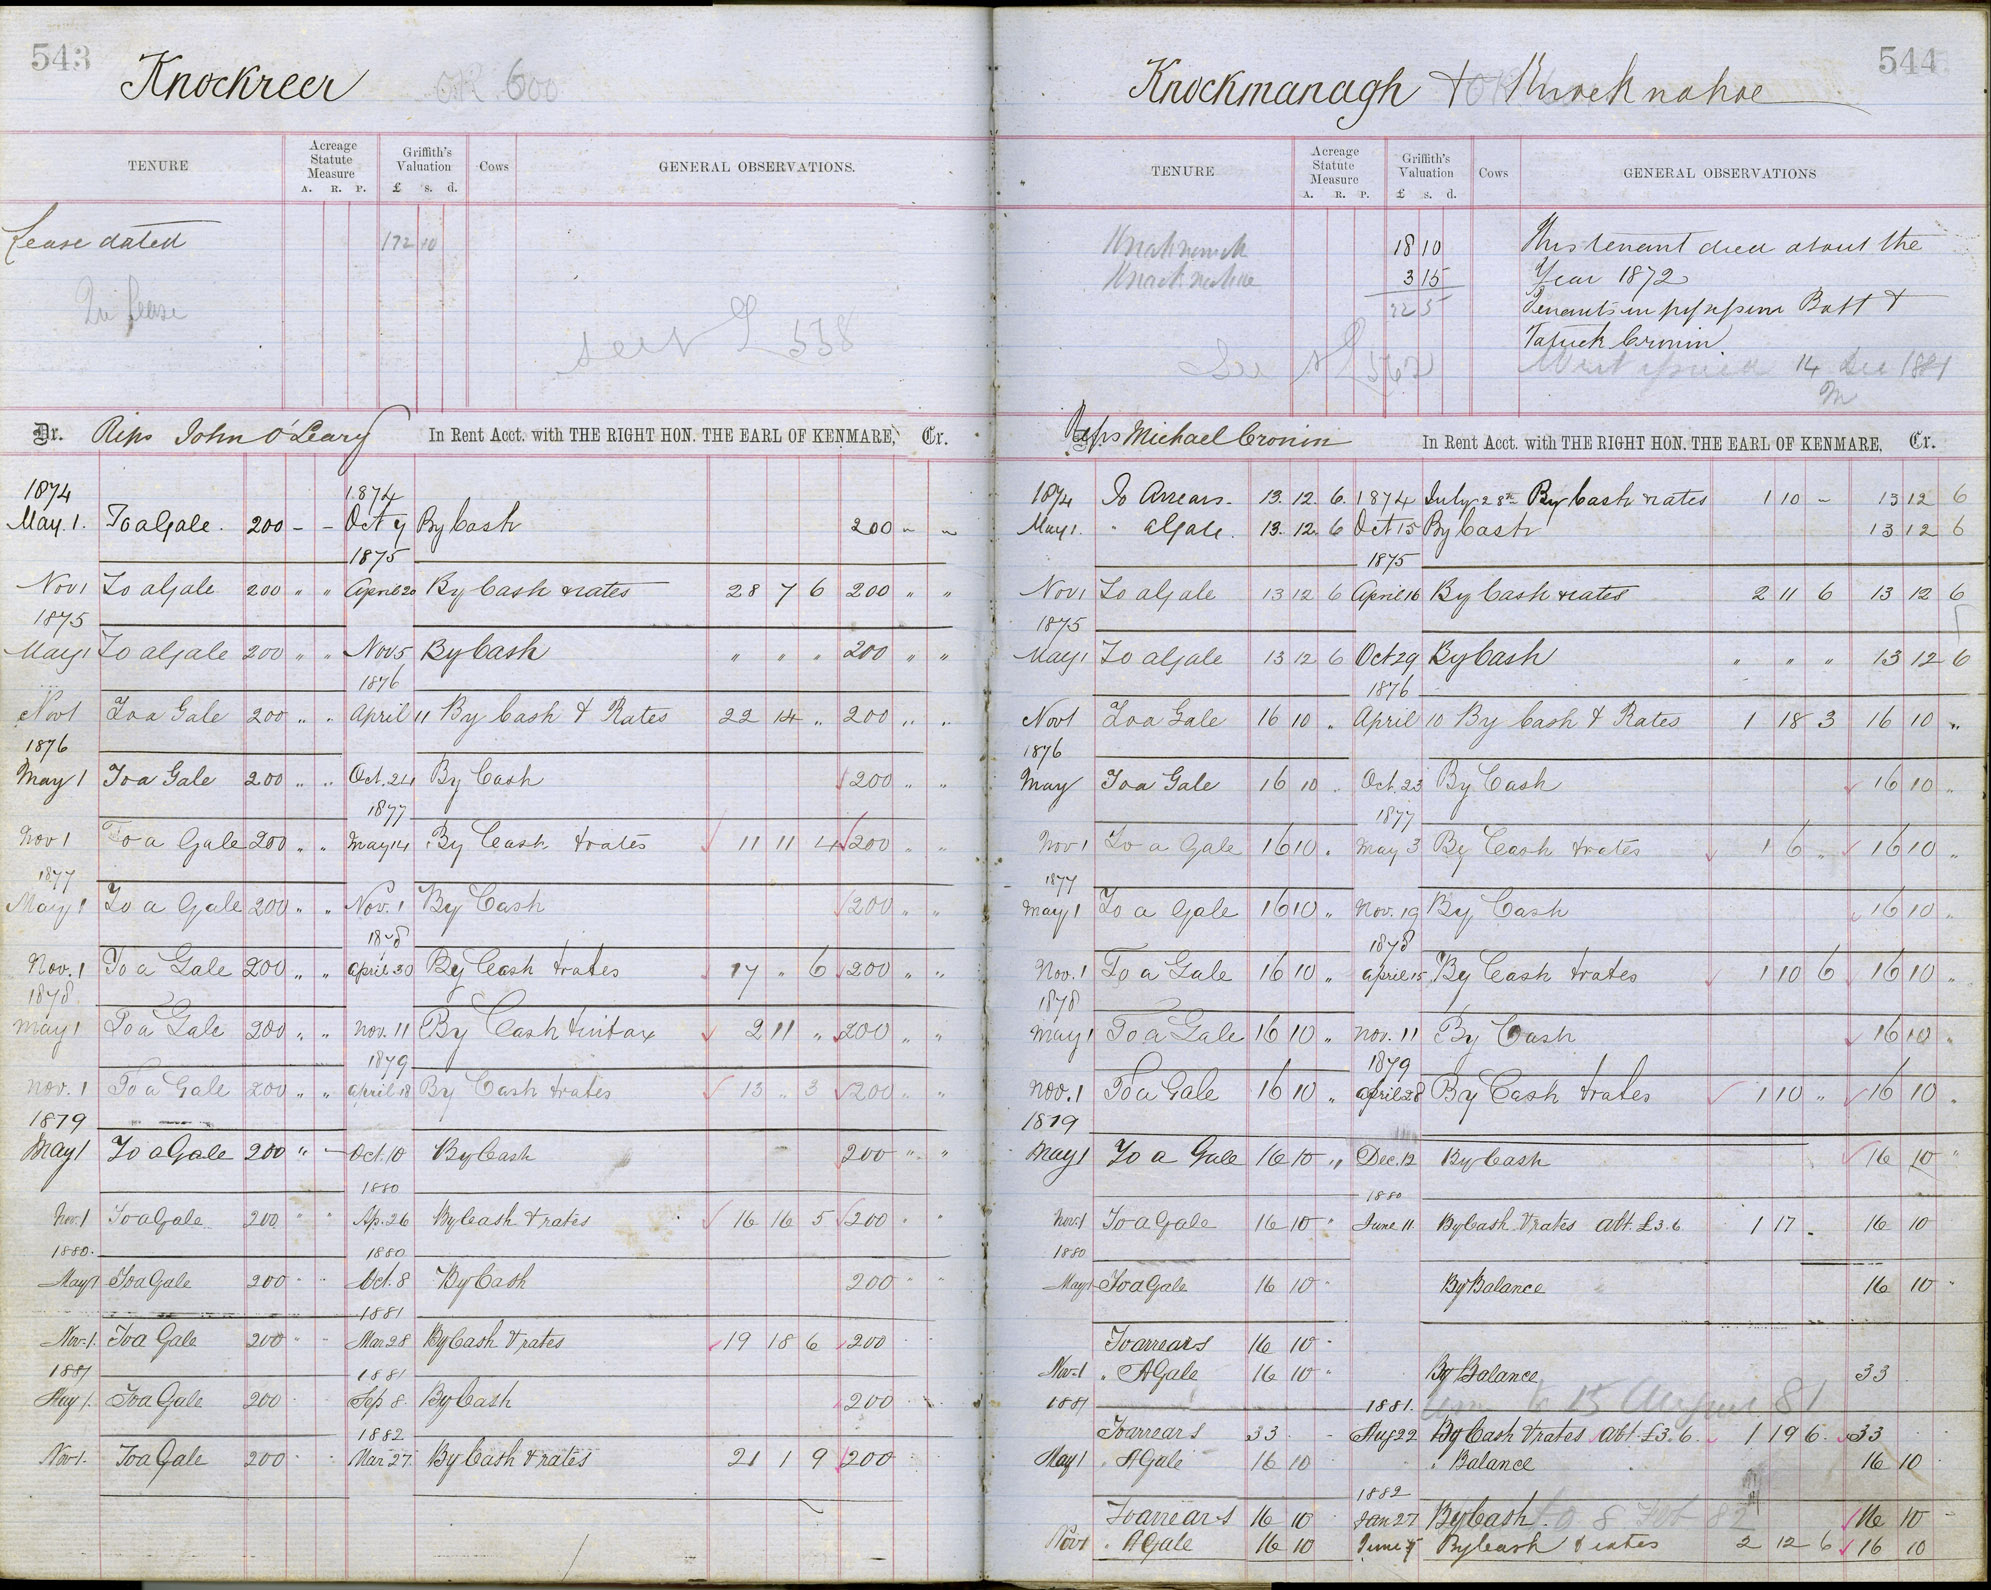 543
Knockreer
OR 600
TENURE Acreage Statute Measure A. R. P. Griffith's Valuation £ s. d. Cows GENERAL OBSERVATIONS.
Lease dated 172 10
In Lease
538
Dr. Reps John O'Leary In Rent Acct. with THE RIGHT HON. THE EARL OF KENMARE, Cr.
1874 1874
May. 1. To a Gale. 200 - - Oct 9 By Cash 200 " "
1875
Nov 1 To a Gale 200 " " April 20 By Cash & rates 28 7 6 200 " "
1875
May 1 To a Gale 200 " " Nov 5 By Cash " " " 200 " "
1876
Nov 1 To a Gale 200 " " April 11 By Cash & Rates 22 14 " 200 " "
1876
May 1 To a Gale 200 " " Oct. 24 By Cash 200 " "
1877
Nov 1 To a Gale 200 " " May 14 By Cash & rates 11 11 4 200 " "
1877
May 1 To a Gale 200 " " Nov. 1 By Cash 200 " "
1878
Nov. 1 To a Gale 200 " " April 30 By Cash & rates 17 " 6 200 " "
1878
May 1 To a Gale 200 " " Nov. 11 By Cash 2 11 " 200 " "
1879
Nov. 1 To a Gale 200 " " April 18 By Cash & rates 13 " 3 200 " "
1879
May 1 To a Gale 200 " - Oct. 10 By Cash 200 " "
1880
Nov. 1 To a Gale 200 " " Ap. 26 By Cash & rates 16 16 5 200 " "
1880. 1880
May 1 To a Gale 200 " " Oct. 8 By Cash 200 " "
1881
Nov. 1. To a Gale 200 " " Mar 28 By Cash & rates 19 18 6 200
1881 1881
May 1. To a Gale 200 Sep 8 By Cash 200
1882
Nov 1. To a Gale 200 Mar 27 By Cash & rates 21 1 9 200
544
Knockmanagh & Knocknahoe
TENURE Acreage Statute Measure A. R. P. Griffith's Valuation £ s. d. Cows GENERAL OBSERVATIONS
18 10 This tenant died about the
Knocknahoe 3 15 Year 1872
22 5 Tenants in possession Batt &
Patrick Cronin
See 562 Writ issued 14 Dec 1881
Reps Michael Cronin In Rent Acct. with THE RIGHT HON. THE EARL OF KENMARE, Cr.
1874 To Arrears - 13. 12. 6. 1874 July 28th By Cash & rates 1 10 - 13 12 6
May 1. " a Gale. 13. 12. 6 Oct 15 By Cash 13 12 6
1875
Nov 1 To a Gale 13 12 6 April 16 By Cash & rates 2 11 6 13 12 6
1875
May 1 To a Gale 13 12 6 Oct 29 By Cash " " " 13 12 6
1876
Nov 1 To a Gale 16 10 " April 10 By Cash & Rates 1 18 3 16 10 "
1876
May To a Gale 16 10 " Oct. 23 By Cash 16 10 "
1877
Nov 1 To a Gale 16 10 " May 3 By Cash & rates 1 6 " 16 10 "
1877
May 1 To a Gale 16 10 " Nov. 19 By Cash 16 10 "
1878
Nov. 1 To a Gale 16 10 " April 15 By Cash & rates 1 10 6 16 10 "
1878
May 1 To a Gale 16 10 " Nov. 11 By Cash 16 10 "
1879
Nov. 1 To a Gale 16 10 " April 28 By Cash & rates 1 10 " 16 10 "
1879
May 1 To a Gale 16 10 " Dec. 12 By Cash 16 10 "
1880
Nov. 1 To a Gale 16 10 " June 11 By Cash & rates Abt. £3.6 1 17 - 16 10
1880
May 1 To a Gale 16 10 " By Balance 16 10 "
To arrears 16 10 "
Nov. 1 " A Gale 16 10 " By Balance 33
1881 1881. 15 August 81
To arrears 33 Aug 22 By Cash & rates Abt. £3.6. 1 19 6 33
May 1 " A Gale 16 10 " Balance 16 10
1882
To arrears 16 10 Jan 27 By Cash. to 8 Feb 82 16 10
Nov 1 " A Gale 16 10 June By Cash & rates 2 12 6 16 10